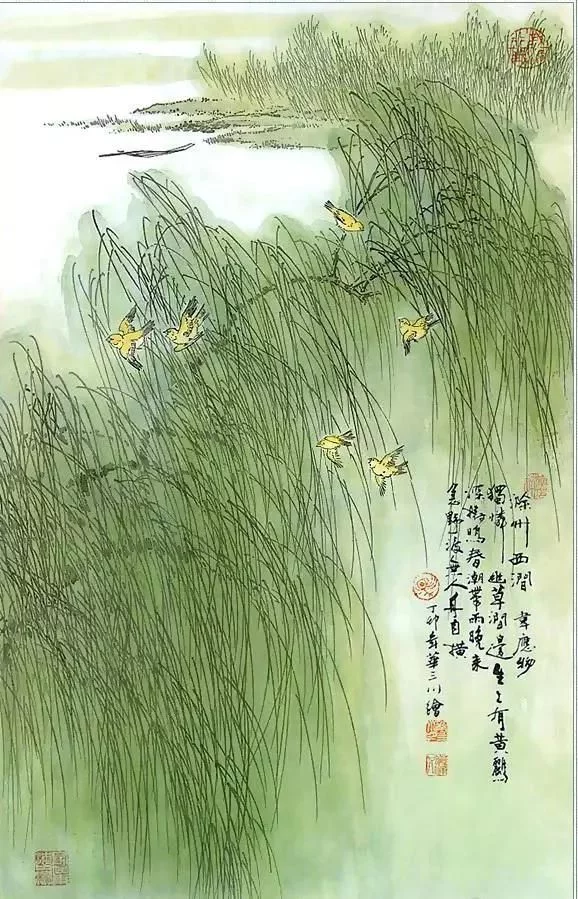 滁州西澗 韋應物
獨憐幽草澗邊生上有黃鸝
深樹鳴春潮帶雨晚來
急野渡無人舟自橫
丁卯年華三川繪